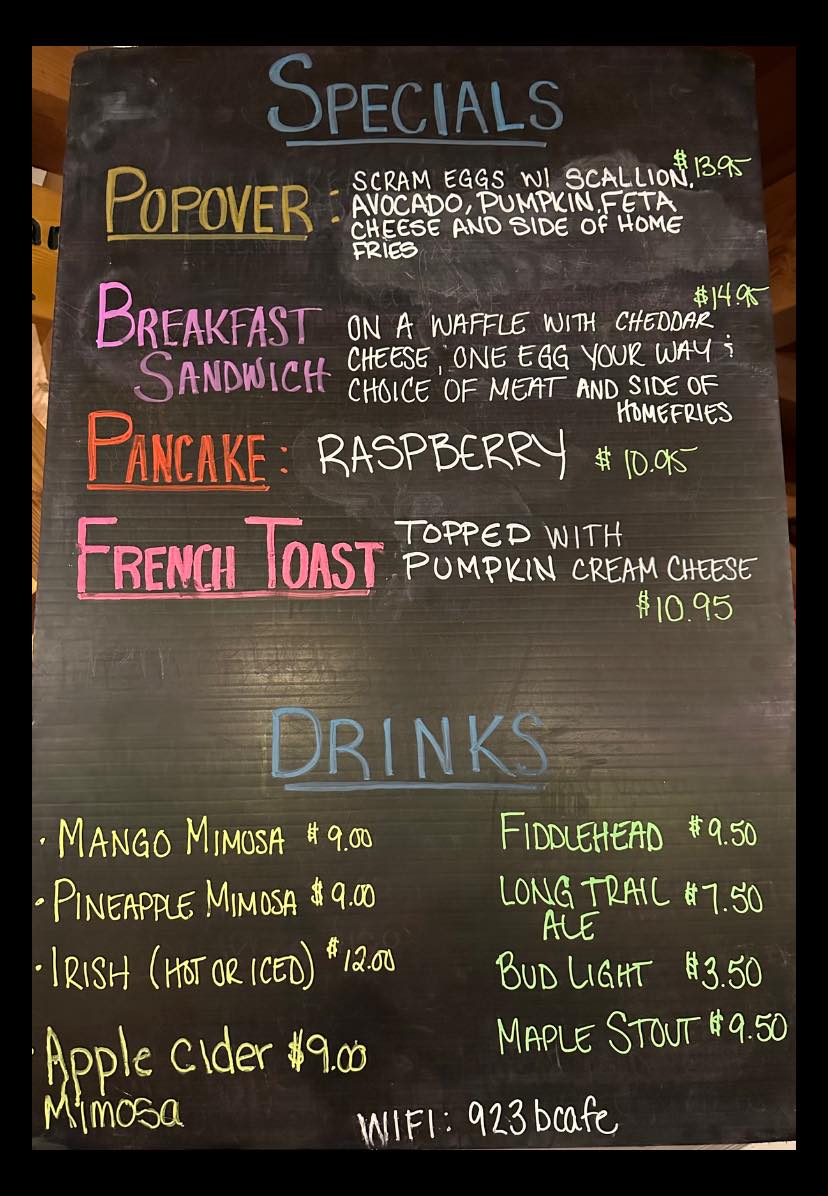 SPECIALS
POPOVER: SCRAM EGGS W/ SCALLION, $13.95
AVOCADO, PUMPKIN, FETA
CHEESE AND SIDE OF HOME
FRIES
$14.95
BREAKFAST ON A WAFFLE WITH CHEDDAR
SANDWICH CHEESE, ONE EGG YOUR WAY &
CHOICE OF MEAT AND SIDE OF
HOMEFRIES
PANCAKE: RASPBERRY $10.95
FRENCH TOAST TOPPED WITH
PUMPKIN CREAM CHEESE
$10.95
DRINKS
• MANGO MIMOSA $9.00
• PINEAPPLE MIMOSA $9.00
• IRISH (HOT OR ICED) $12.00
• Apple Cider $9.00
Mimosa
FIDDLEHEAD $9.50
LONG TRAIL $7.50
ALE
BUD LIGHT $3.50
MAPLE STOUT $9.50
WIFI: 923bcafe